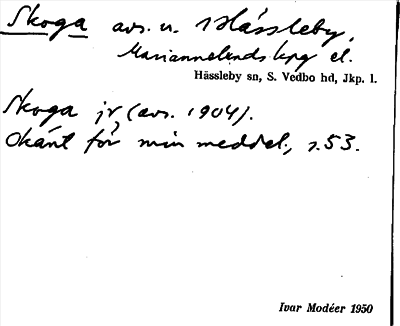 Skoga avs. u. Hässleby,
Mariannelunds kpg el.
Hässleby sn, S. Vedbo hd, Jkp. l.
Skoga jr, (avs. 1904).
Okänt för min meddel., s. 53.
Ivar Modéer 1950